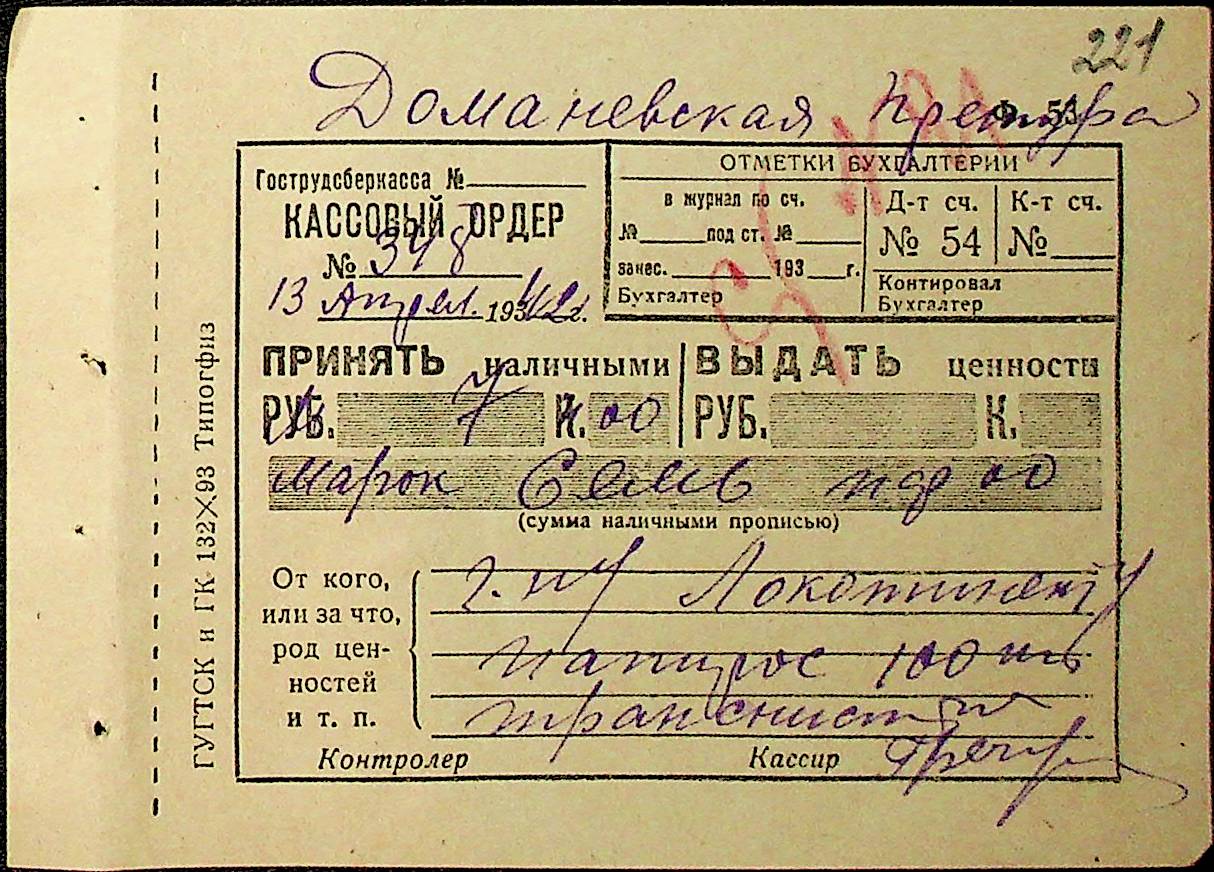 221
Доманевская Претура
Ф. 54
Гострудсберкасса №
КАССОВЫЙ ОРДЕР
№ 348
13 Апрел. 1942 г.
ОТМЕТКИ БУХГАЛТЕРИИ
в журнал по сч.
№ под ст. №
занес. 193 г.
Бухгалтер
Д-т сч.
№ 54
К-т сч.
№
Контировал
Бухгалтер
ПРИНЯТЬ наличными
РУБ. 7 К. 00
ВЫДАТЬ ценности
РУБ. К.
марок Семь пф 00
(сумма наличными прописью)
От кого,
или за что,
род цен-
ностей
и т. п.
г-ну
папирос 100 шт
Контролер
Кассир
ГУГТСК и ГК 132 X 93 Типогфиз